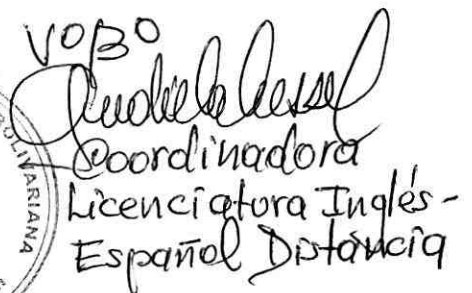 VoBo
Coordinadora
Licenciatura Inglés-
Español Distáncia
BOLIVARIANA